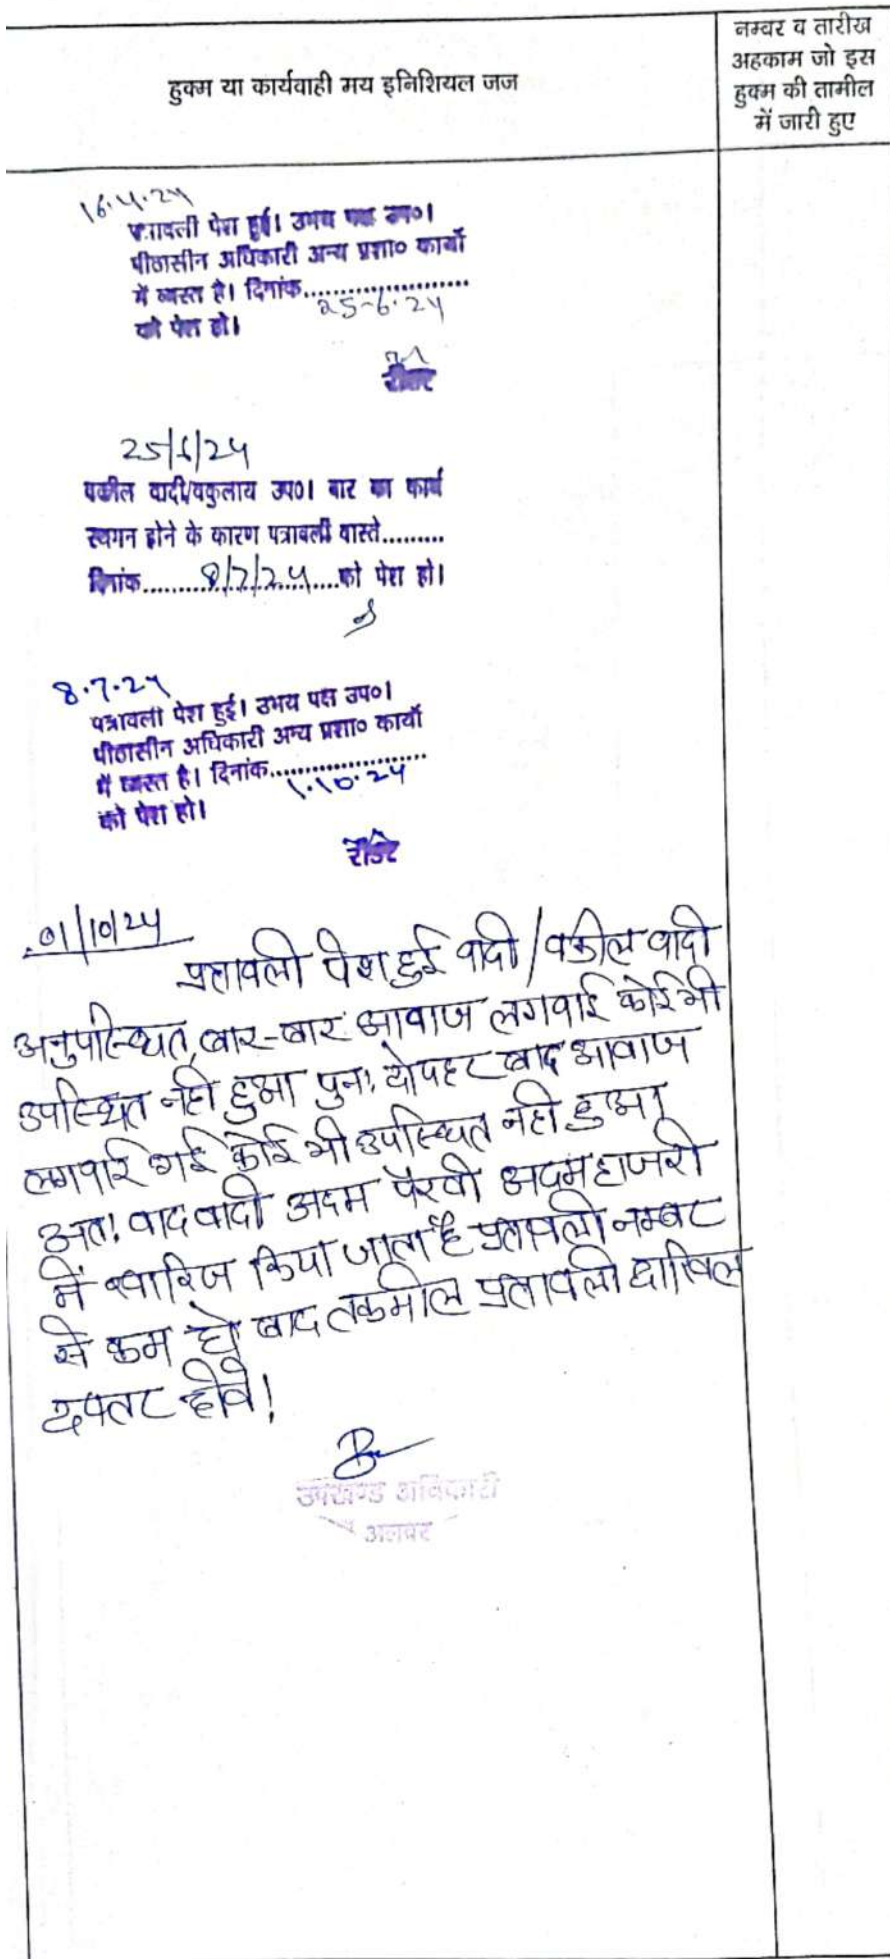 हुक्म या कार्यवाही मय इनिशियल जज
नम्बर व तारीख
अहकाम जो इस
हुक्म की तामील
में जारी हुए
16.4.24
पत्रावली पेश हुई। उभय पक्ष उप०।
पीठासीन अधिकारी अन्य प्रशा० कार्यो
में व्यस्त है। दिनांक....................
25-6-24
को पेश हो।
रीडर
25/6/24
वकील वादी/वकुलाय उप०। बार का कार्य
स्थगन होने के कारण पत्रावली वास्ते.........
दिनांक.........8/7/24....को पेश हो।
8.7.24
पत्रावली पेश हुई। उभय पक्ष उप०।
पीठासीन अधिकारी अन्य प्रशा० कार्यो
में व्यस्त है। दिनांक....................
1.10.24
को पेश हो।
रीडर
01/10/24
पत्रावली पेश हुई वादी/वकील वादी
अनुपस्थित, बार-बार आवाज लगवाई कोई भी
उपस्थित नही हुआ पुनः दोपहर बाद आवाज
लगवाई गई कोई भी उपस्थित नही हुआ।
अतः वाद वादी अदम पैरवी अदम हाजरी
में खारिज किया जाता है पत्रावली नम्बर
से कम हो बाद तकमील पत्रावली दाखिल
दफ्तर होवे।
उपखण्ड अधिकारी
अलवर